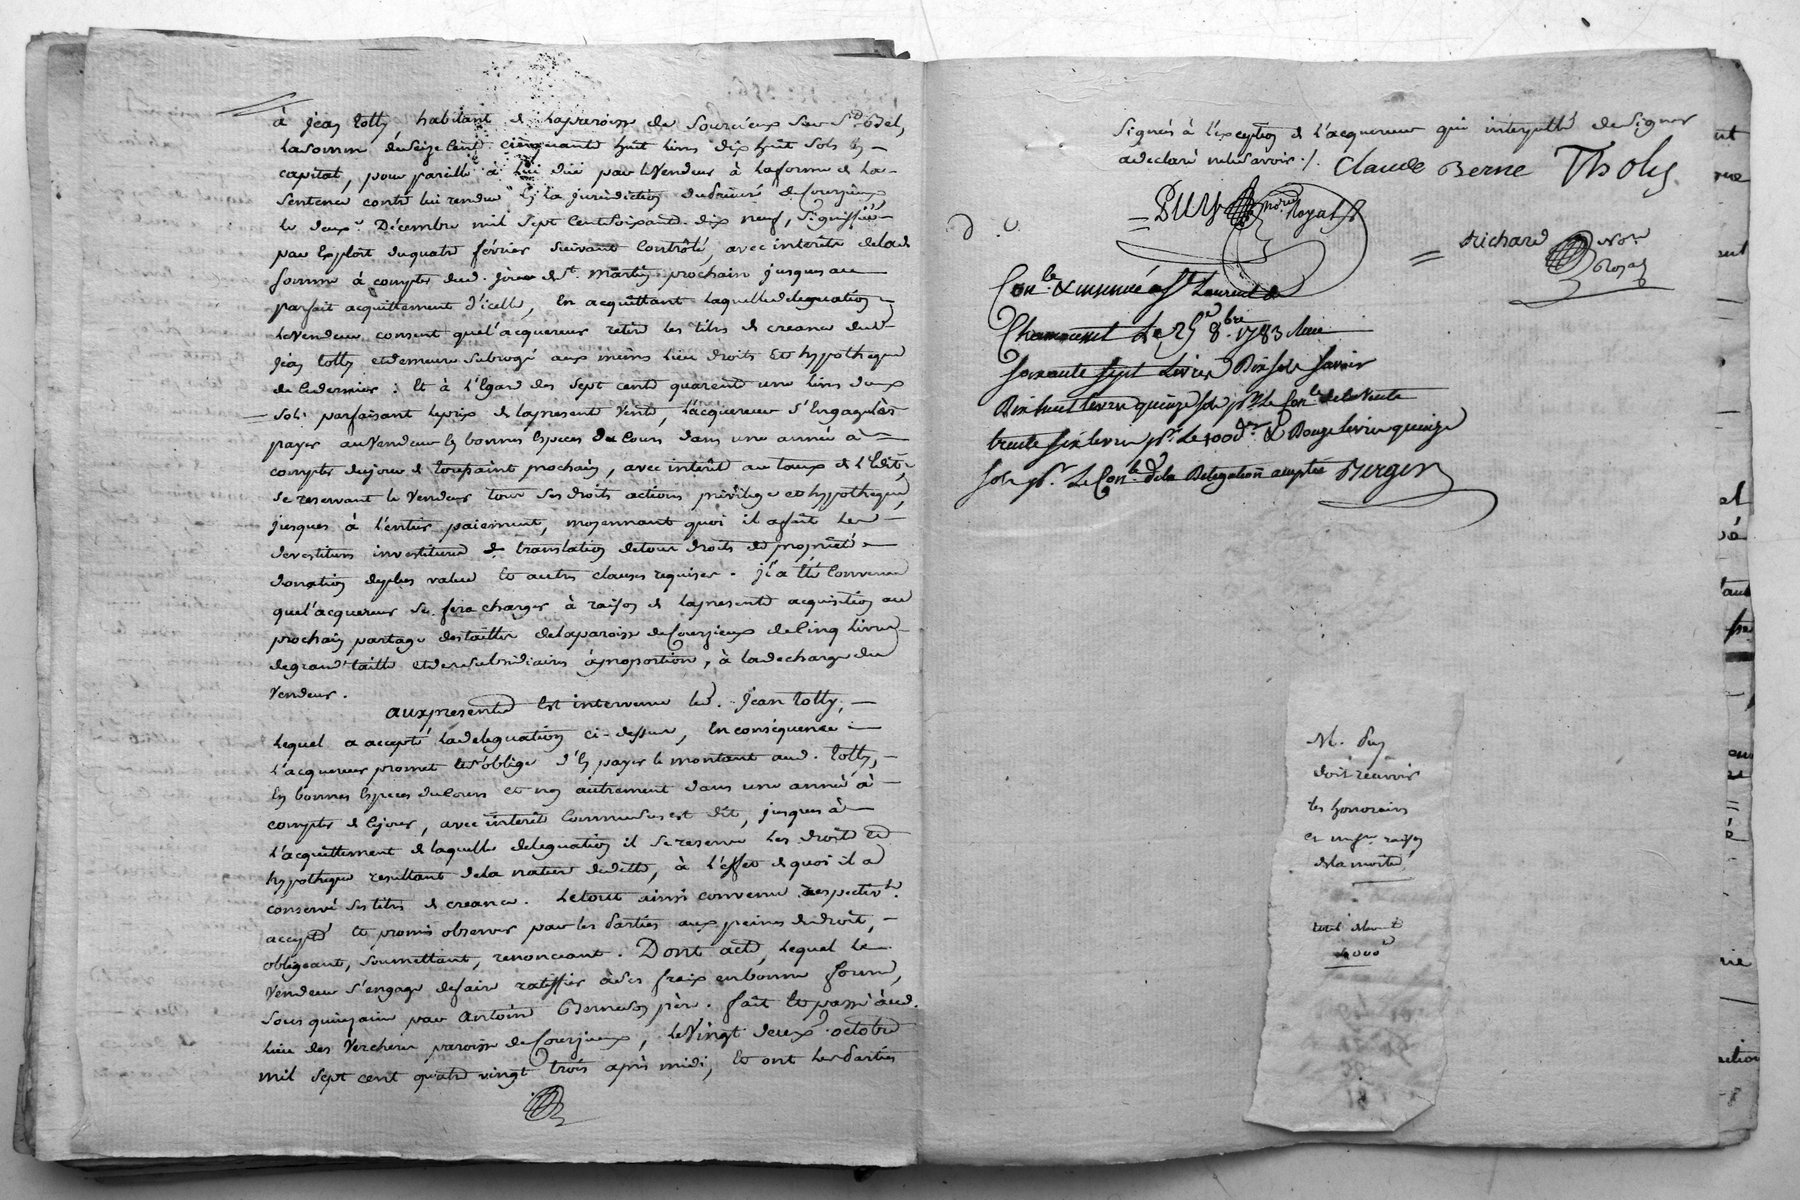 à jean tolly habitant de la paroisse de Sourcieux sur St. Bel,
la somme de seize cent cinquante huit livres dix huit sols en
capital, pour pareille à lui due par le Vendeur à la forme de la
Sentence contre lui rendue en la jurisdiction du prieuré de Courzieux
le deuxe. Décembre mil sept cent soixante dix neuf, signiffiée
par Exploit du quatre février suivant Contrôlé, avec interêts de lade.
somme à compter dud. jour de St. Martin prochain jusques au
parfait acquittement d'icelle, En acquittant laquelle deleguation
le Vendeur consent que l'acquereur retire les titres de creance dud.
jean tolly et demeure subrogé aux mêmes lieu droits et hypotheque
de ce dernier : Et à l'Egard des sept cent quarente une livres deux
sols parfaisant le prix de la presente Vente, l'acquereur s'Engage les
payer au Vendeur En bonnes Especes du Cours dans une année à
compter du jour de toussaint prochain, avec interêt au taux de l'Edit,
se reservant le Vendeur tous ses droits actions privilege et hypotheque,
jusques à l'entier paiement, moyennant quoi il a fait les
devestiture investiture & translation de tous droits de propriété
donation de plus value et autres clauses requises. il a été Convenu
que l'acquereur se fera charger à raison de la presente acquisition au
prochain partage des tailles de la paroisse de Courzieux de Cinq livres
de grand taille et de subsidiaires à proportion, à la decharge du
Vendeur.
aux presentes Est intervenu led. Jean tolly,
lequel a accepté la deleguation ci-dessus, En conséquence
l'acquereur promet et s'oblige d'En payer le montant aud. tolly,
En bonnes Especes du Cours et non autrement dans une année à
compter de ce jour, avec interêt Comme sus est dit, jusques à
l'acquittement de laquelle deleguation il se reserve les droits et
hypotheque resultant de la nature de dette, à l'effet de quoi il a
conservé ses titres de creance. Le tout ainsi convenu respectivt.
accepté et promis observer par les Parties aux peines de droit,
obligeant, soumettant, renonceant. Dont acte, lequel le
Vendeur s'engage de faire ratiffier à ses fraix en bonne forme,
sous quinzaine par Antoine Berne son père. fait et passé aud.
lieu des Verchere paroisse de Courzieux, le Vingt deuxe. octobre
mil sept cent quatre vingt trois après midi, Et ont les Parties
signés à l'exception de l'acquereur qui interpellé de signer
a declaré ne le savoir ./. Claude Berne Tholy
Puy nore. Royal
Richard Nore.
Royal
Conle. & insinué a St. Laurent de
Chamousset Le 25 8bre. 1783 Reçu
soixante sept Livres Dix sols savoir
Dix huit livres quinze sols pr. Le Conle. de la vente
trente six livres pr. Le 100d. & Douze livres quinze
sols pr. Le Conle. de la Delegation acceptée Berger
M. Puy
doit recevoir
les honoraires
et
de la moitié